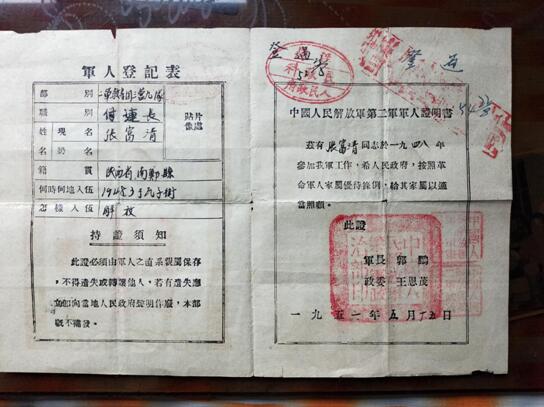 軍人登記表
部別
職別 付連長
姓名 現名 張富清
曾名
貼片像處
籍貫 陝西省南鄭縣
何時何地入伍 1948.3
怎樣入伍 解放
持證須知
此證必須由軍人之直系親屬保存
，不得遺失或轉讓他人，若有遺失應
立即向當地人民政府聲明作廢，本部
概不補發。
登過
中國人民解放軍第二軍軍人證明書
茲有張富清同志於一九四八年
參加我軍工作，希人民政府，按照革
命軍人家屬優待條例，給其家屬以適
當照顧。
此證
軍長 郭鵬
政委 王恩茂
一九五一年五月十五日